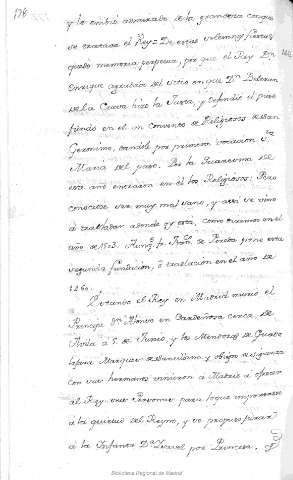 178
y le embió admirado de la grandeza con que
se trataba el Rey. De estas valemos fiestas
quedó memoria perpetua, por que el Rey Dn
Enrique agradado del sitio en que Dn Beltran
de la Cueva hizo la Justa, y defendió el paso
fundo en él un Convento de Religiosos de San
Geronimo, dandole por primera vocacion Sta
Maria del paso. Por la Quaresma de
este año entraron en él los Religiosos; Pero
conociose ser muy mal sano, y assi se vino
á trasladar adonde oy está, como diremos en el
año de 1503. Aunq. fr. de pone esta
segunda fundacion, ó traslacion en el año de
Estando el Rey en Madrid murió el
Principe Dn Alonso en Cardeñosa cerca de
Avila á 5 de Junio, y los Mendozas de Guada
laxara Marques de Santillana, y Obispo de Siguenza
con sus hermanos vinieron á Madrid á ofrecer
al Rey sus Personas para lo que importasse
á la quietud del Reyno, y se propuso jurar
á la Infanta Da Isabel por Princesa.
Biblioteca Regional de Madrid